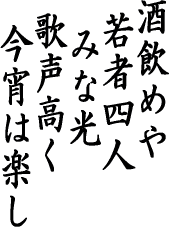 酒飲めや
若者四人
みな光
歌声高く
今宵は楽し